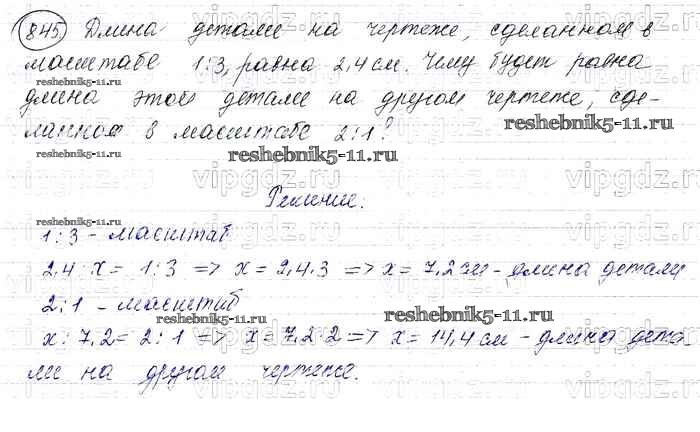 845 Длина детали на чертеже, сделанном в
масштабе 1:3, равна 2,4 см. Чему будет равна
длина этой детали на другом чертеже, сде-
ланном в масштабе 2:1?
Решение:
1:3 - масштаб
2,4 : x = 1:3 => x = 2,4·3 => x = 7,2 см - длина детали
2:1 - масштаб
x : 7,2 = 2:1 => x = 7,2·2 => x = 14,4 см - длина дета
ли на другом чертеже.
reshebnik5-11.ru
reshebnik5-11.ru
reshebnik5-11.ru
reshebnik5-11.ru
reshebnik5-11.ru
vipgdz.ru